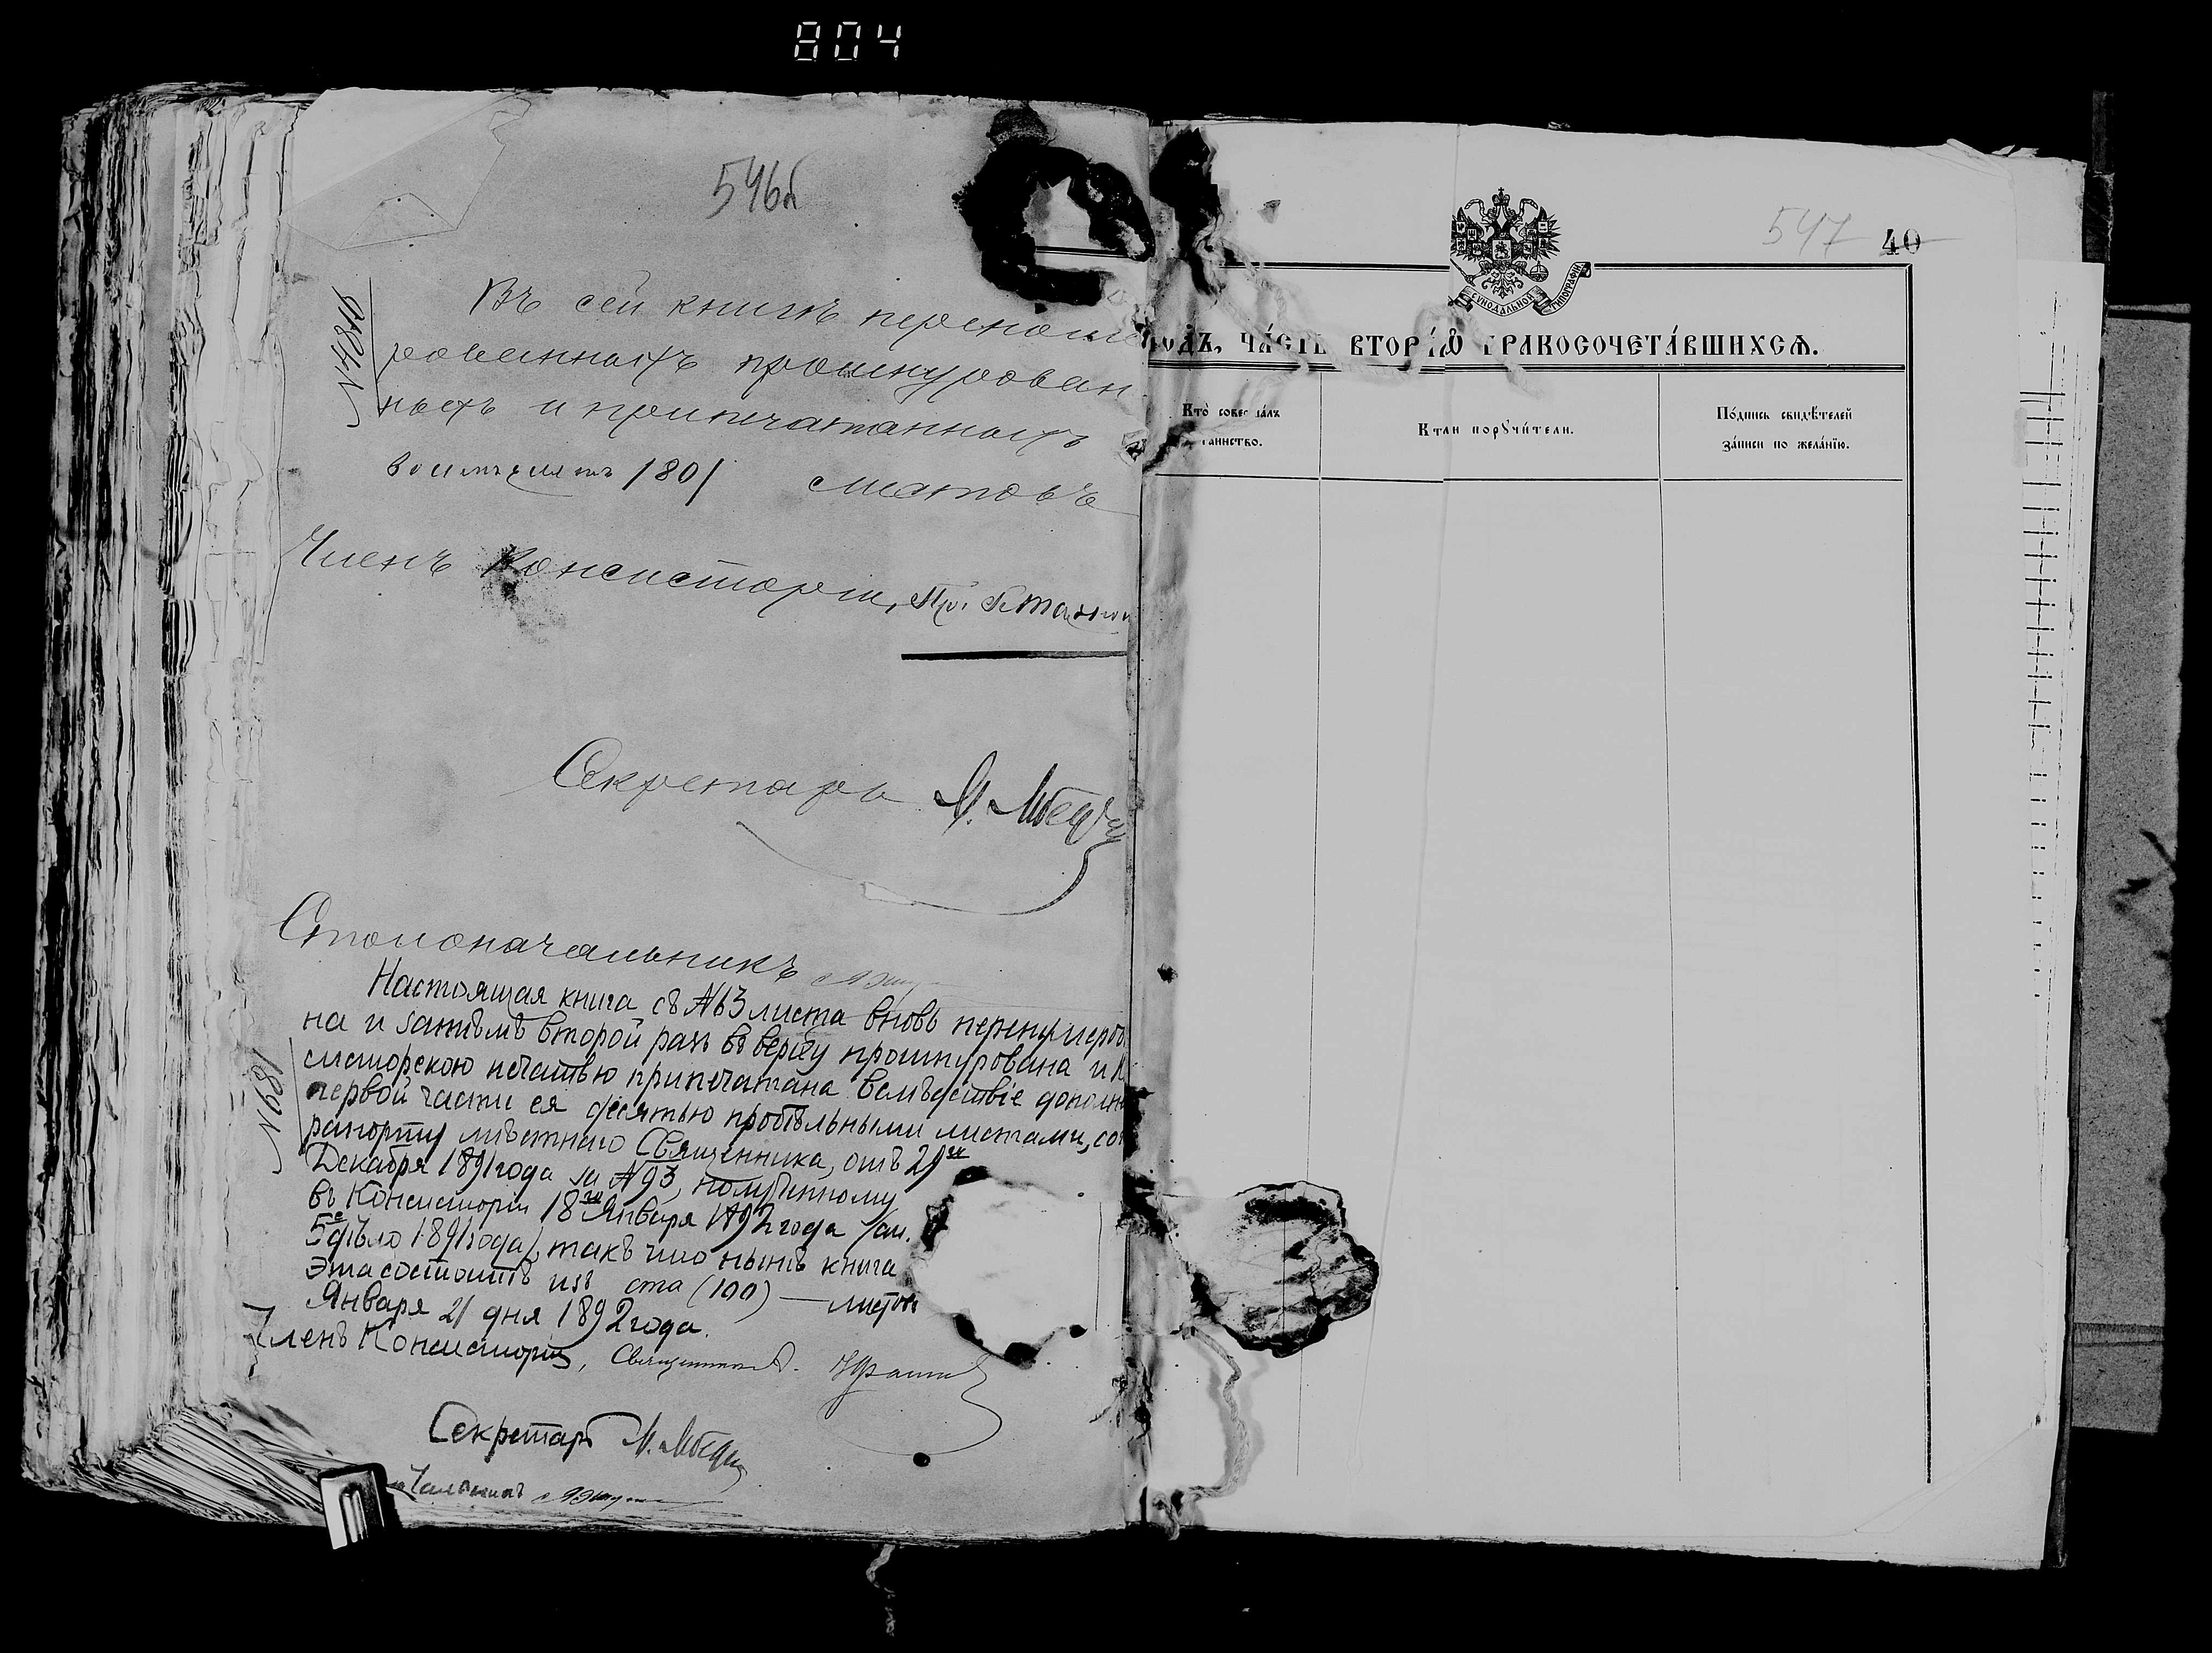 804
546б
№ 4818
Въ сей книгѣ перенуме
рованныхъ прошнурован
ныхъ и припечатанныхъ
восемьдесятъ /80/ листовъ
Членъ Консисторіи, Пр.
Секретарь
Столоначальникъ
№ 681
Настоящая книга съ №63 листа вновь перенумеро
на и затѣмъ второй разъ въ верху прошнурована и К
систорскою печатью припечатана вслѣдствіе дополне
первой части ея десятью пробѣльными листами, сог
рапорту мѣстнаго Священника, отъ 29го
Декабря 1891 года за №93, полученному
въ Консисторіи 18го Января 1892 года /ст.
5е дѣло 1891 года/, такъ что нынѣ книга
эта состоитъ изъ ста (100) — листов
Января 21 дня 1892 года.
Членъ Консисторіи, Священникъ
Секретарь
чальникъ
547 40
СѴНОДАЛЬНОЙ ТИПОГРАФІИ
ГОДЪ, ЧА́СТЬ ВТОРА́Ѧ Ѡ БРАКОСОЧЕТА́ВШИХСѦ.
Кто̀ соверша́лъ
таинство.
Кт҄ѡ порꙋчи́тели.
По́дпись свидѣ́телей
за́писи по жела́нїю.